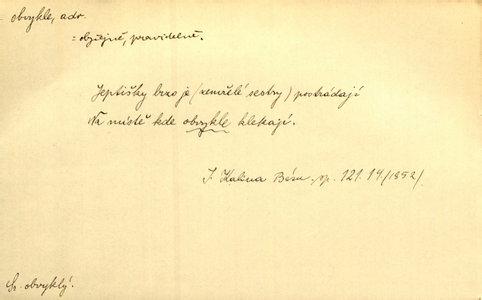 obvykle, adv.
= obyčejně, pravidelně.
Jeptišky brzo je (zemřelé sestry) postrádají
Na místě kde obvykle klekají.
J. Kalina Básn. sp. 121. 14 /1852/.
Sr. obvyklý.